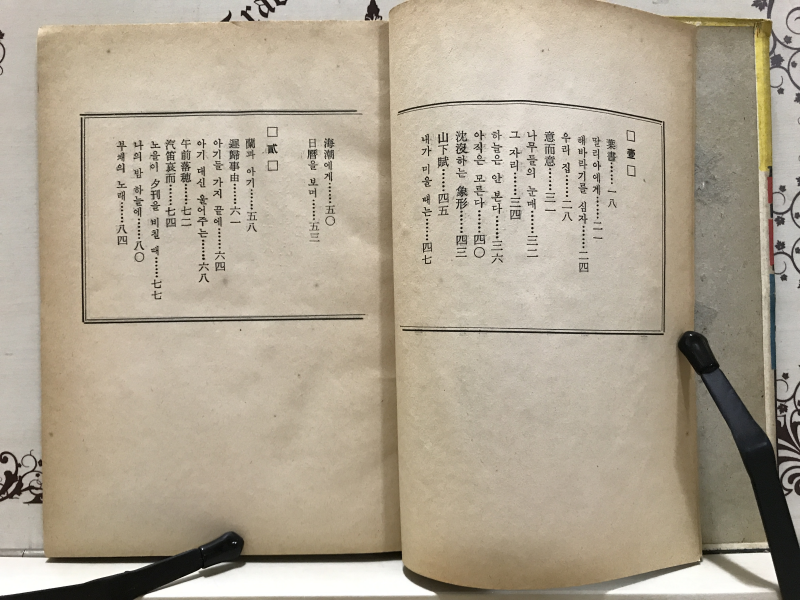 □ 壹 □
葉書……一八
말리아에게……二一
해바라기를 심자……二四
우리 집……二八
意而意……三一
나무들의 눈매……三二
그 자리……三四
하늘은 안 본다……三六
아직은 모른다……四〇
沈沒하는 象形……四三
山下賦……四五
내가 미울 때는……四七
海潮에게……五〇
日曆을 보며……五三
□ 貳 □
蘭과 아기……五八
遲歸事由……六一
아기들 가지 끝에……六四
아기 대신 울어주는……六八
午前落穗……七二
汽笛哀而……七四
노을이 夕刊을 비칠 때……七七
나의 밤 하늘에……八〇
부재의 노래……八四